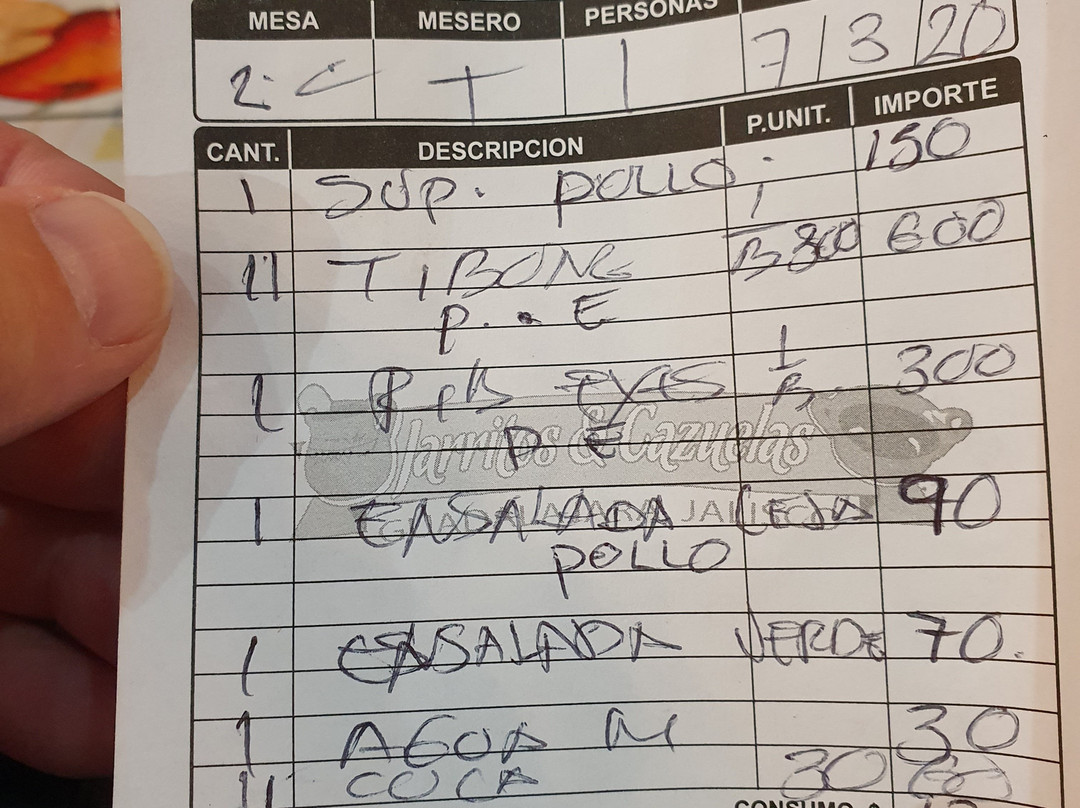 MESA MESERO PERSONAS
2 T 1 7/3/20
CANT. DESCRIPCION P.UNIT. IMPORTE
1 SUP. POLLO 150
11 TIBONE 300 600
P. E
1 RIB EYES 1 300
Jarritos & Cazuelas
P E
1 ENSALADA 90
POLLO
1 ENSALADA VERDE 70.
1 AGUA M 30
11 COCA 30 60
CONSUMO